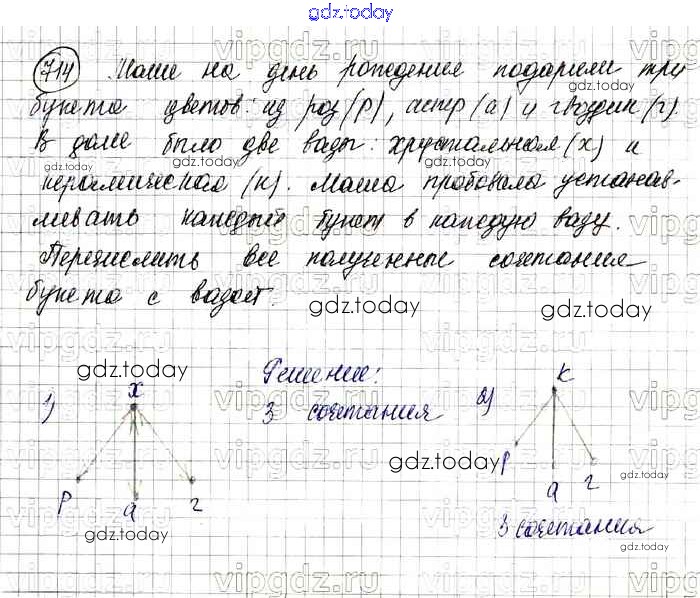 gdz.today
714 Маше на день рождения подарили три
букета цветов: из роз (р), астр (а) и гвоздик (г).
В доме было две вазы: хрустальная (х) и
керамическая (к). Маша пробовала устанав-
ливать каждый букет в каждую вазу.
Перечислить все полученные сочетания
букета с вазой.
gdz.today
gdz.today
gdz.today
Решение:
1) х
р а г
3 сочетания
2) к
р а г
3 сочетания
gdz.today
gdz.today
gdz.today
gdz.today
vipgdz.ru